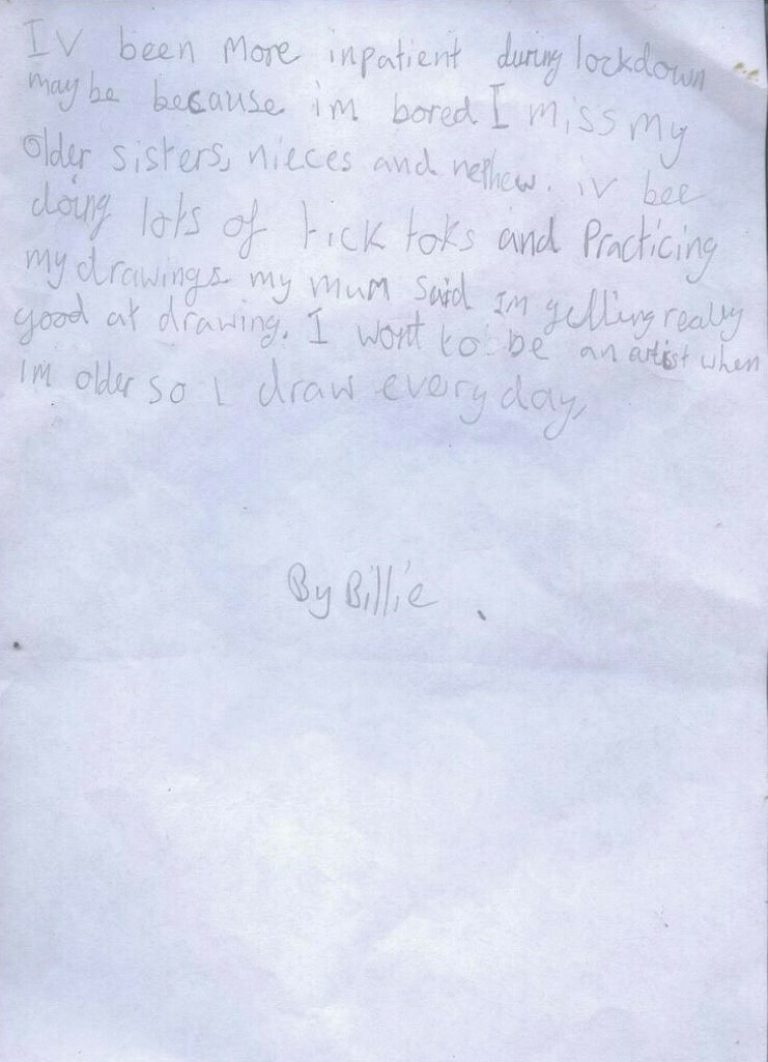 IV been more inpatient during lockdown
may be because im bored I miss my
older sisters, nieces and nephew. iv bee
doing lots of tick toks and Practicing
my drawings my mum said Im getting really
good at drawing. I want to be an artist when
im older so I draw every day,
By Billie